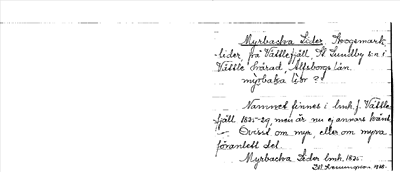 Myrbacka Lider Skogsmark
lider på Vättlefjäll St Lundby s:n i
Vättle härad, Älfsborgs län
myrbaka lior ?
Namnet finnes i lmk. f. Vättle
fjäll 1825-29, men är nu ej annars känt
— Ovisst om myr, eller om myra
föranlett det.
Myrbacka Lider lmk. 1825.